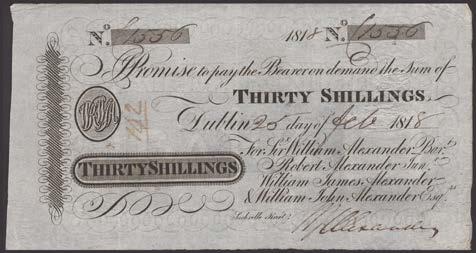 No. 1556 1818 No. 1556
I Promise to pay the Bearer on demand the Sum of
THIRTY SHILLINGS
Dublin 25 day of Feb 1818
For Sir William Alexander Bart.
Robert Alexander Junr.
THIRTY SHILLINGS
William James Alexander
& William John Alexander Esqrs.
Sackville Street
Alexander